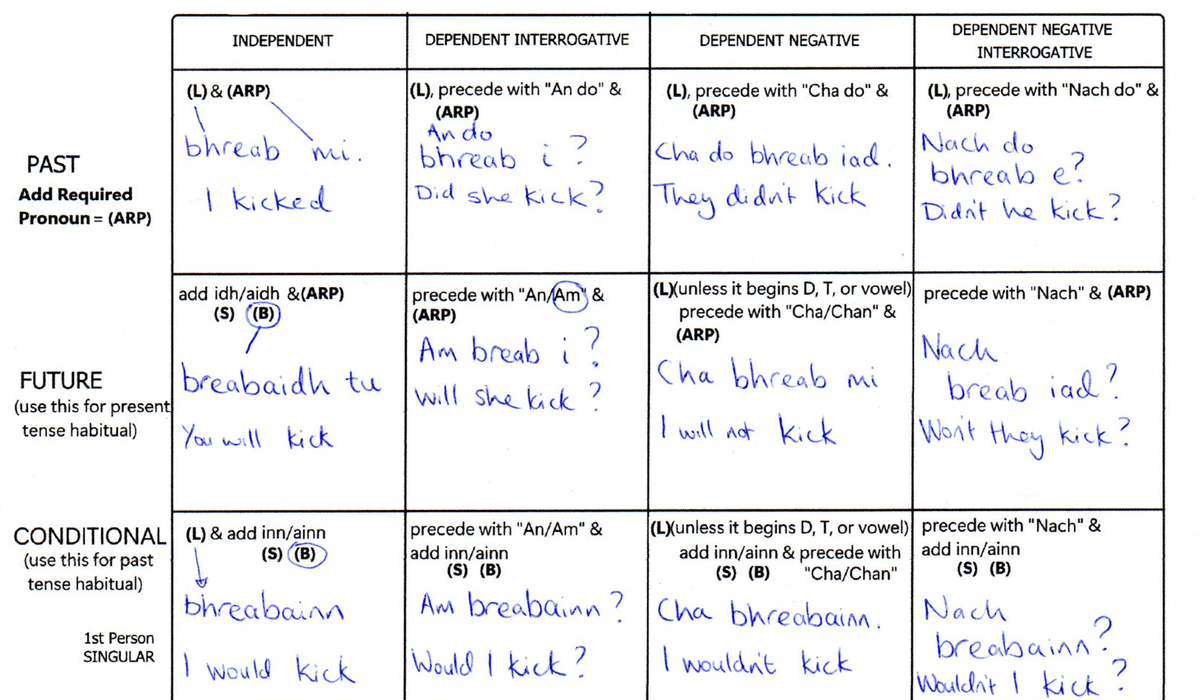 INDEPENDENT
DEPENDENT INTERROGATIVE
DEPENDENT NEGATIVE
DEPENDENT NEGATIVE
INTERROGATIVE
PAST
Add Required
Pronoun = (ARP)
(L) & (ARP)
bhreab mi.
I kicked
(L), precede with "An do" &
(ARP)
An do
bhreab i ?
Did she kick?
(L), precede with "Cha do" &
(ARP)
Cha do bhreab iad.
They didn't kick
(L), precede with "Nach do" &
(ARP)
Nach do
bhreab e?
Didn't he kick?
FUTURE
(use this for present
tense habitual)
add idh/aidh &(ARP)
(S) (B)
breabaidh tu
You will kick
precede with "An/Am" &
(ARP)
Am breab i ?
Will she kick ?
(L)(unless it begins D, T, or vowel)
precede with "Cha/Chan" &
(ARP)
Cha bhreab mi
I will not kick
precede with "Nach" & (ARP)
Nach
breab iad?
Won't they kick?
CONDITIONAL
(use this for past
tense habitual)
1st Person
SINGULAR
(L) & add inn/ainn
(S) (B)
bhreabainn
I would kick
precede with "An/Am" &
add inn/ainn
(S) (B)
Am breabainn ?
Would I kick?
(L)(unless it begins D, T, or vowel)
add inn/ainn & precede with
(S) (B) "Cha/Chan"
Cha bhreabainn.
I wouldn't kick
precede with "Nach" &
add inn/ainn
(S) (B)
Nach
breabainn?
Wouldn't I kick ?